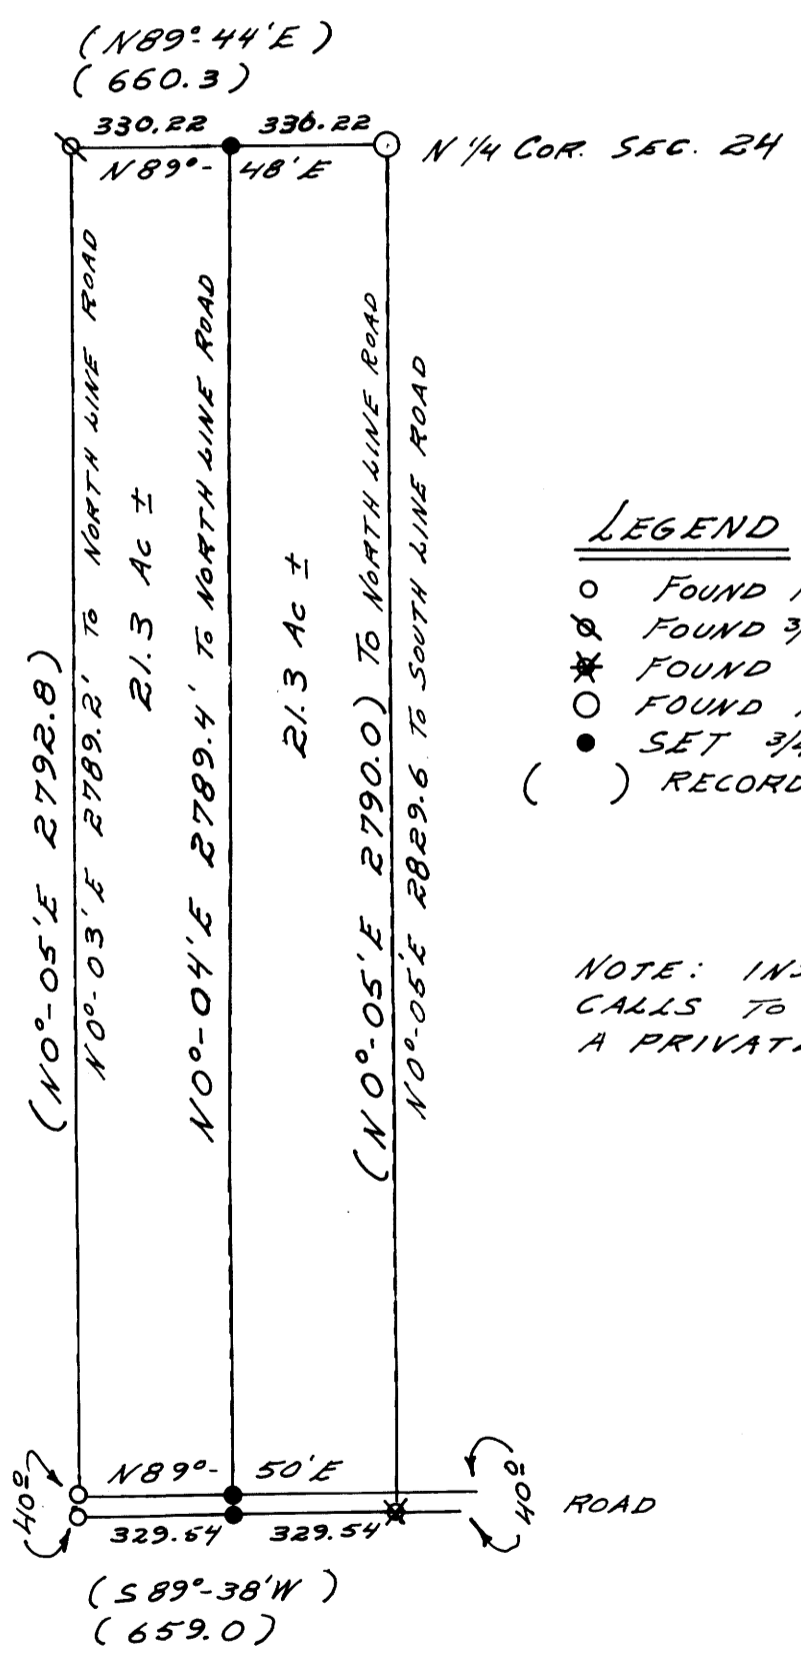 (N89°-44'E)
(660.3)
330.22 330.22
N89°-48'E
N 1/4 COR. SEC. 24
(N0°-05'E 2792.8)
N0°-03'E 2789.2' TO NORTH LINE ROAD
21.3 AC ±
N0°-04'E 2789.4' TO NORTH LINE ROAD
21.3 AC ±
(N0°-05'E 2790.0) TO NORTH LINE ROAD
N0°-05'E 2829.6 TO SOUTH LINE ROAD
LEGEND
FOUND
FOUND
FOUND
FOUND
SET
( ) RECORD
NOTE:
CALLS TO
A
N89°-50'E
40º
40º
ROAD
329.54 329.54
(S89°-38'W)
(659.0)